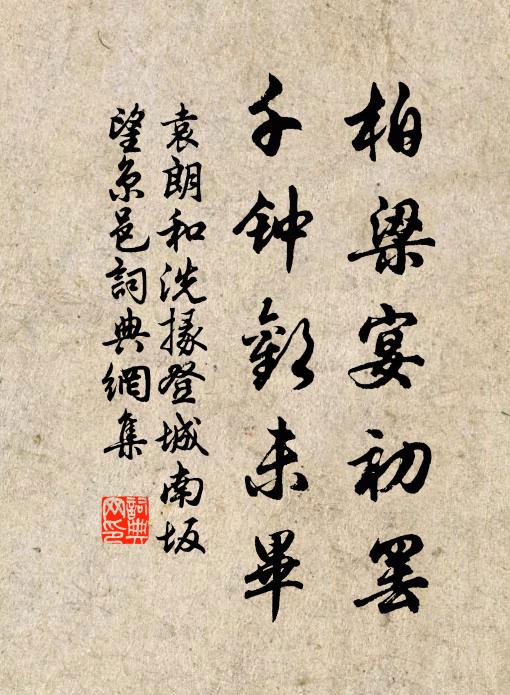 柏梁宴初罢
千钟欢未畢
袁朗和洗掾登城南坂
望京邑詞典網集
詞典
网印